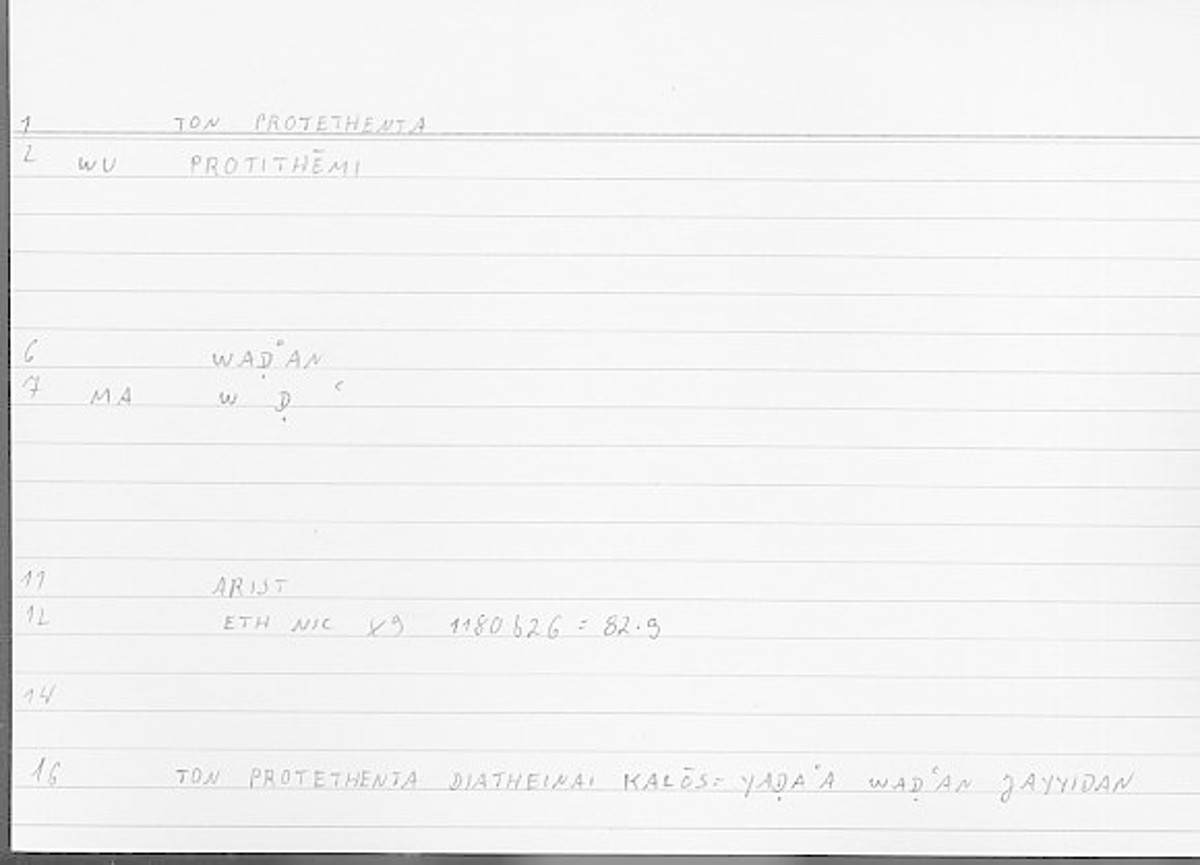 1 TON PROTETHENTA
2 WU PROTITHĒMI
6 WAḌʿAN
7 MA W Ḍ ʿ
11 ARIST
12 ETH NIC X9 1180b26 = 82.9
14
16 TON PROTETHENTA DIATHEINAI KALŌS = YAḌAʿA WAḌʿAN JAYYIDAN